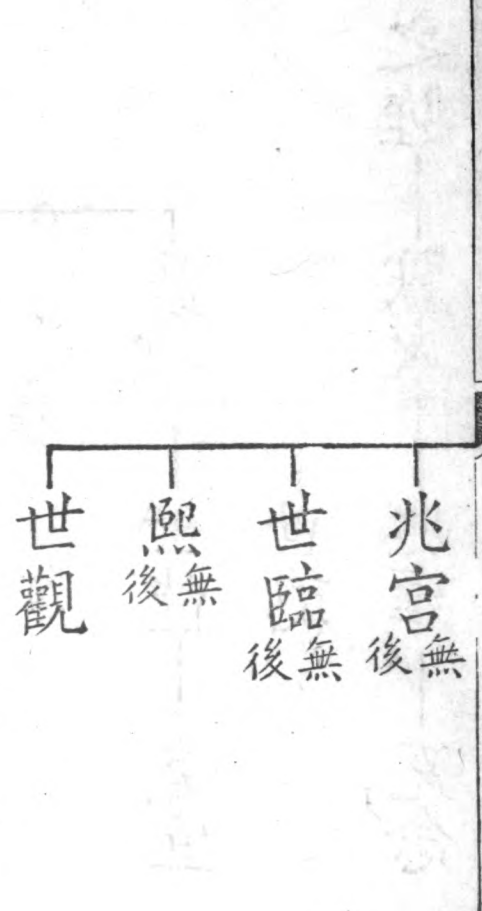 兆宮無後
世臨無後
熙無後
世觀